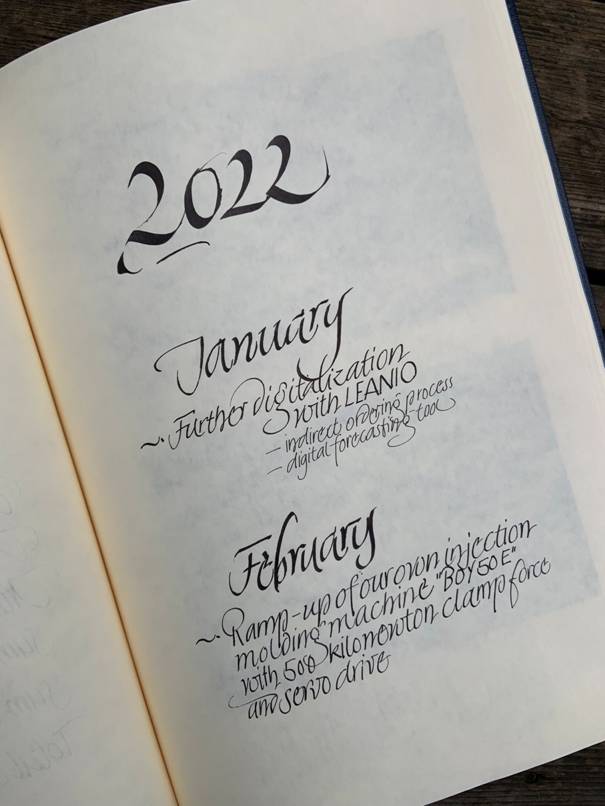 2022
January
~. Further digitalization
with LEANIO
– indirect ordering process
– digital forecasting tool
February
~. Ramp-up of our own injection
molding machine "BOY 50 E"
with 500 kilonewton clamp force
and servo drive